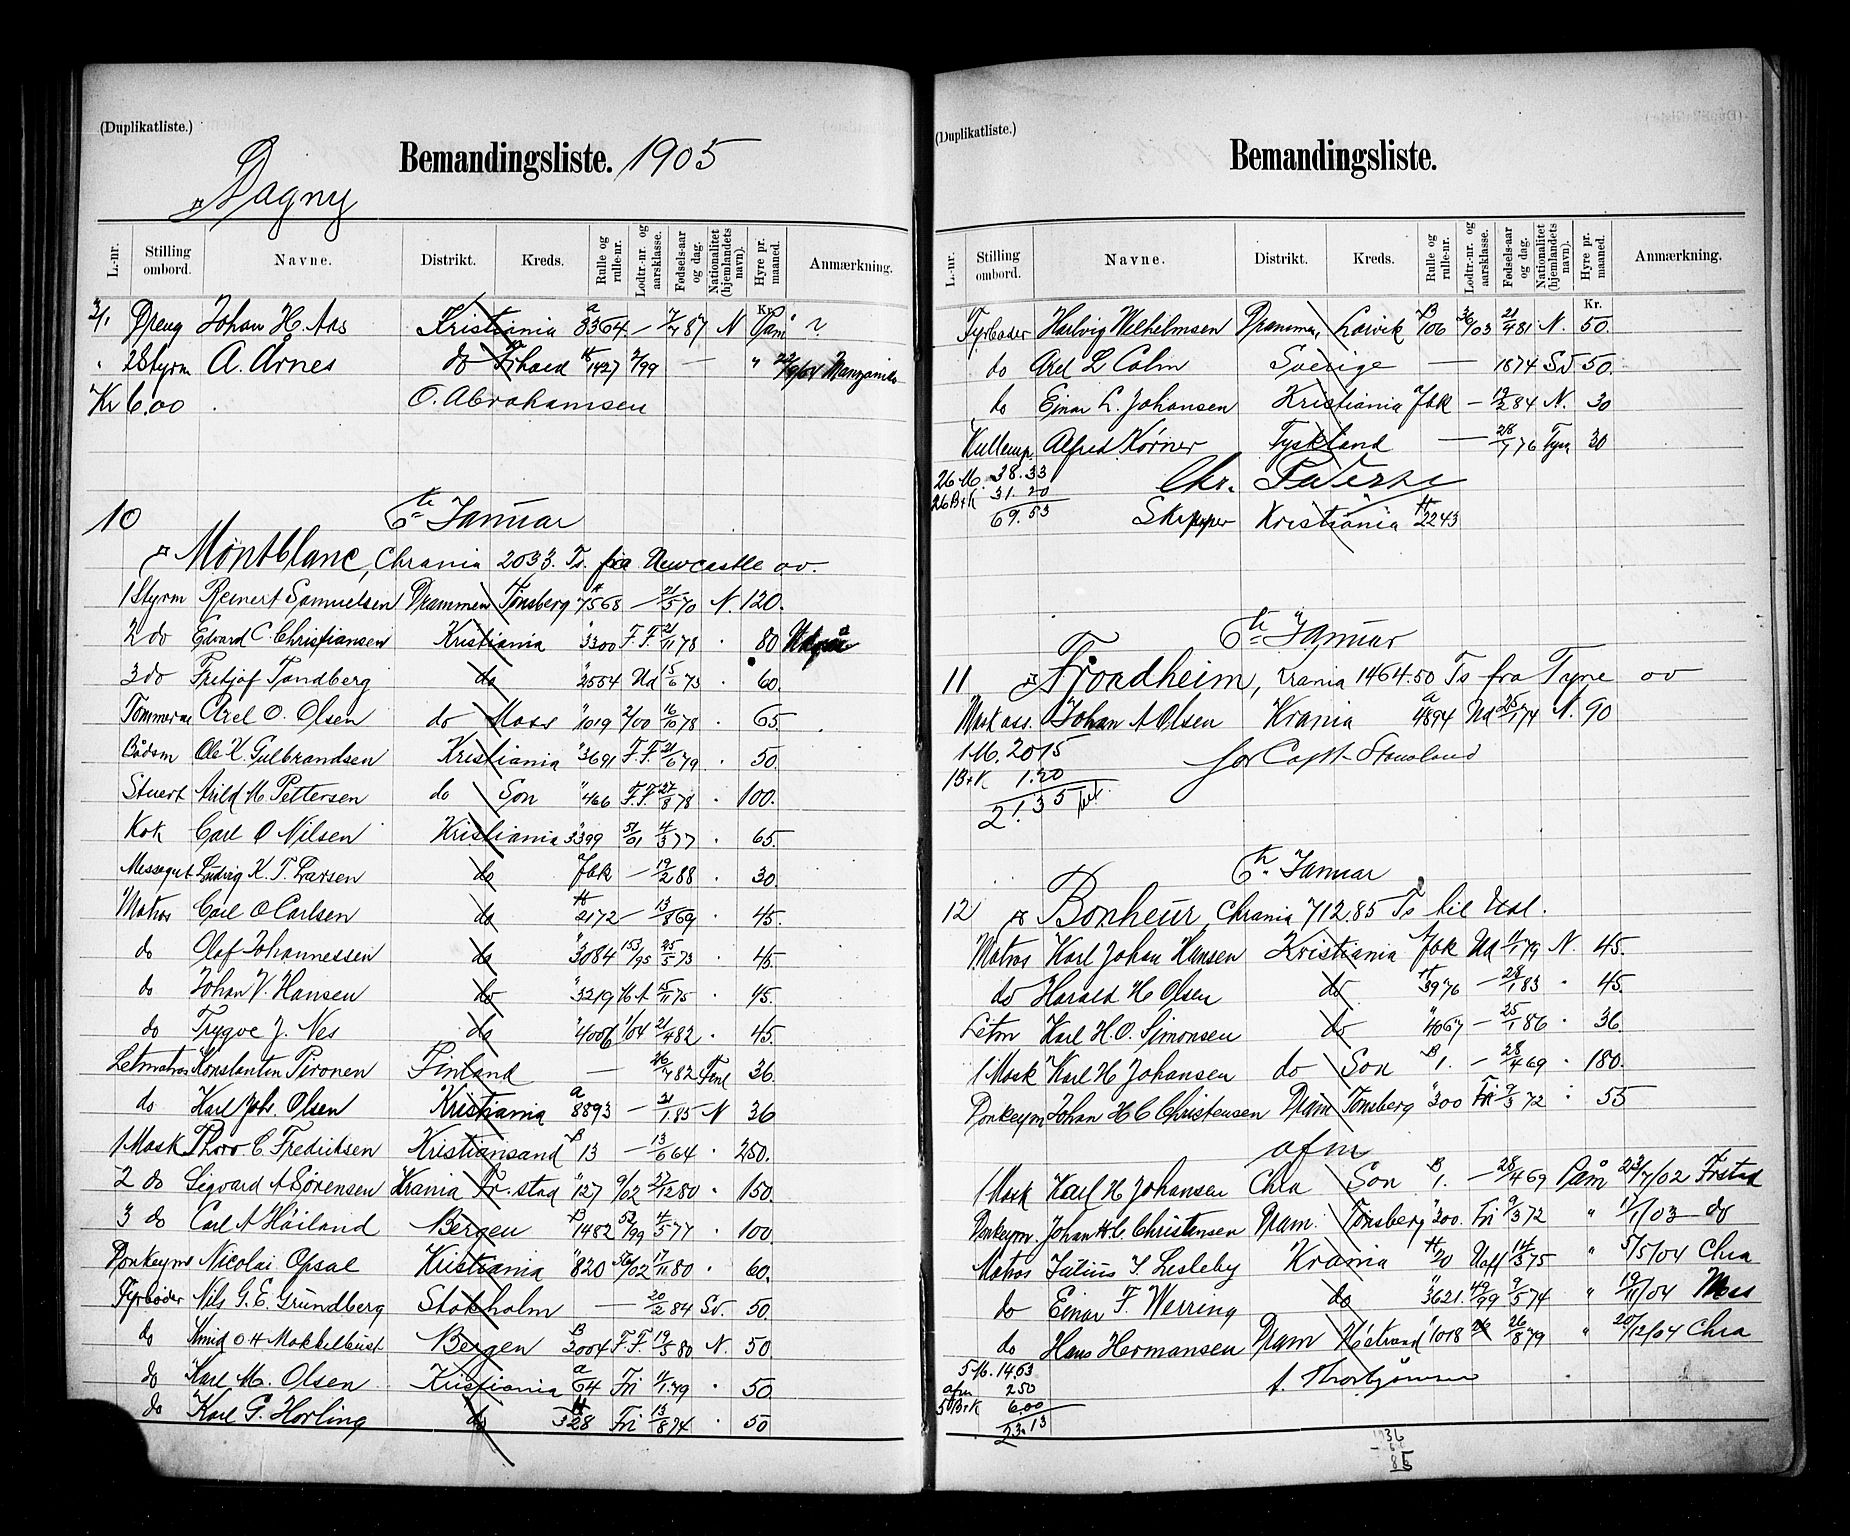 (Duplikatliste.)
Bemandingsliste. 1905
Dagny
L.-nr. Stilling ombord. Navne. Distrikt. Kreds. Rulle og rulle-nr. Lodtr-nr. og aarsklasse. Fødsels-aar og dag. Nationalitet (hjemlandets navn). Hyre pr. maaned. Anmærkning.
Dreng Johan H. Aas Kristiania a 8364 — 7/7 87 N
2 Styrm A. Arnes do 1427 2/99 — " Manzanillo
Kr 6.00 O. Abrahamsen
10 6te Januar
Montblanc, Chrania 2033. Ts. fra Newcastle av.
1 Styrm Reinert Samuelsen Drammen Tønsberg 7568 — 21/5 70 N. 120.
2 do Edvard C. Christiansen Kristiania " 3300 F.F. 21/11 78 · 80
3 do Fritjof Tandberg do " 2554 Ud 15/6 73 · 60.
Tømmerm Axel O. Olsen do Moss " 1019 2/00 16/10 78 · 65.
Bådsm Ole K. Gulbrandsen Kristiania " 3691 F.F. 21/6 79 · 50.
Stuert Arild M Pettersen do Son " 466 F.F. 27/8 78 · 100.
Kok Carl O Nilsen Kristiania " 3399 51/01 4/3 77 · 65.
Messegut Ludvig K. T. Larsen do Jbk — 19/2 88 · 30.
Matros Carl O Carlsen do H 2172 — 13/8 69 · 45.
do Olaf Johannessen do " 3084 153/95 25/5 73 · 45.
do Johan V. Hansen do " 3219 15/11 75 · 45.
do Trygve J. Nes do " 4006 1/04 21/4 82 · 45.
Letmatros Konstantin Pironen Finland — 26/7 82 Finl 36.
do Karl Johs. Olsen Kristiania a 8893 — 31/1 85 N 36
1 Mask Thoro C. Fredriksen Kristiansand B 13 — 13/6 64 · 250.
2 do Sigvard A Sørensen Krania Fr.stad " 127 9/02 27/12 80 · 150.
3 do Carl A Høiland Bergen B 1482 53/99 4/5 77 · 100
Donkeym Nicolai Opsal Kristiania " 820 56/02 17/11 80 · 60.
Fyrbøder Nils G. E. Grundberg Stokholm — 20/2 84 Sv. 50.
do O H Mokkelbust Bergen B 3004 F.F. 19/5 80 N. 50.
do Karl M. Olsen Kristiania a 64 Fri 4/1 79 · 50
do Karl G. Horling do H 328 Fri 13/8 74 · 50
(Duplikatliste.)
Bemandingsliste.
L.-nr. Stilling ombord. Navne. Distrikt. Kreds. Rulle og rulle-nr. Lodtr-nr. og aarsklasse. Fødsels-aar og dag. Nationalitet (hjemlandets navn). Hyre pr. maaned. Anmærkning.
Kr.
Fyrbøder Hartvig Wilhelmsen Drammen, Larvik B 106 36/03 21/4 81 N. 50.
do Axel L Calm Sverige — 1874 Sv 50.
do Einar L. Johansen Kristiania Jbk — 19/2 84 N. 30
Kullemp. Alfred Kørner Tyskland — 28/1 76 Tysk 30
26 M. 38.33
26 B+K 31.20
69.53
Chr.
Skipper Kristiania H 2243
6te Januar
11 Trondheim, Krania 1464.50 Ts fra Tyne av
Mask ass. Johan A Olsen Krania a 4894 Ud 25/1 74 N. 90
1 M. 20 15 for Capt. Stousland
1 B+K 1.20
21.35
6te Januar
12 Bonheur, Chrania 712.85 Ts til Usl.
Matros Karl Johan Hansen Kristiania Jbk Ud 4/1 79 N. 45.
do Harald H Olsen do H 3976 — 28/1 83 · 45.
Letm Karl H. O. Simonsen do " 4067 — 25/1 86 · 36
1 Mask Karl H Johansen do Son B 1. — 28/4 69 · 180.
Donkeym Johan H C Christensen Dram Tønsberg " 300 Fri 9/3 72 · 55
afm
1 Mask Karl H Johansen Chra Son B 1. — 28/4 69 Påm 23/7/02 Frstad
Donkeym. Johan H.C. Christensen Dram. Tønsberg " 300. Fri 9/3 72 " 17/1/03 do
Matros Julius J. Lesleby Krania H 20 Uaff 14/3 75 " 5/5/04 Chra
do Einar F. Werring do " 3621. 49/99 9/5 74 " 19/11/04 Moss
do Hans Hermansen Dram H.strand " 1018 26/8 79 " 20/12/04 Chra
5 M. 14.63
afm 2.50
5 B+K 6.00
23.13
A. Thorbjørnsen